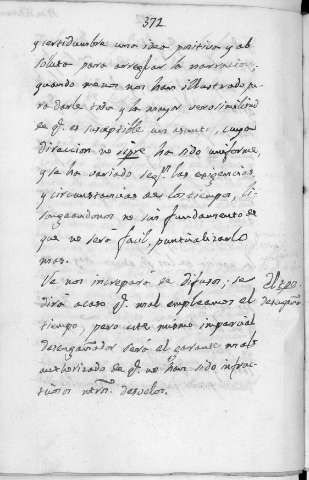 372
y certidumbre una idea positiva y ab-
soluta para arreglar la narracion,
quando menos nos han illustrado pa-
ra darle toda y la mayor verosimilitud
de q.e es suseptible un asunto, cuya
direccion no sipre ha sido uniforme,
y se ha variado seg.n las exigencias,
y circunstancias de los tiempos, li-
songeandonos no sin fundamento de
que no será facil, puntualizarlo
mas.
Se nos increpará de difusos; se
dirá acaso q.e mal empleamos el
tiempo, pero este mismo imparcial
desengañador será el garante mas
authorizado de q.e no han sido infruc-
tuosos ntros. desvelos.
El
desengaño